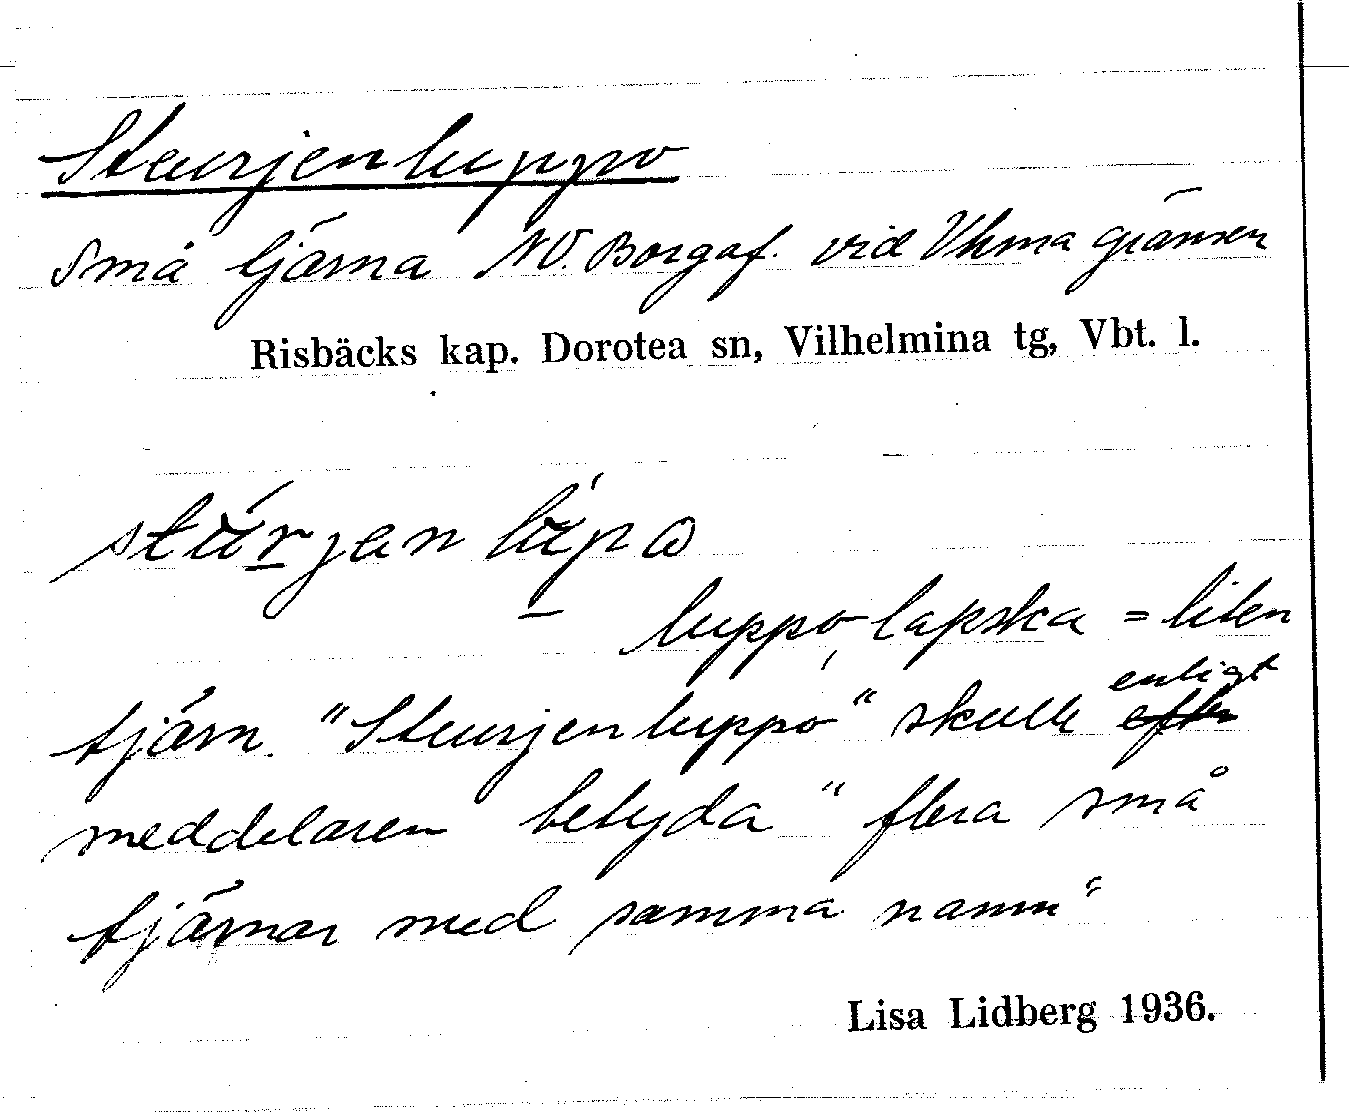 Steurjenluppo
Små tjärna NV. Borgaf. vid Vhma gränsen
Risbäcks kap. Dorotea sn, Vilhelmina tg, Vbt. l.
stúrjan lúpo
luppo, lapska = liten
tjärn. "Steurjenluppo" skulle enligt
meddelaren betyda "flera små
tjärnar med samma namn"
Lisa Lidberg 1936.